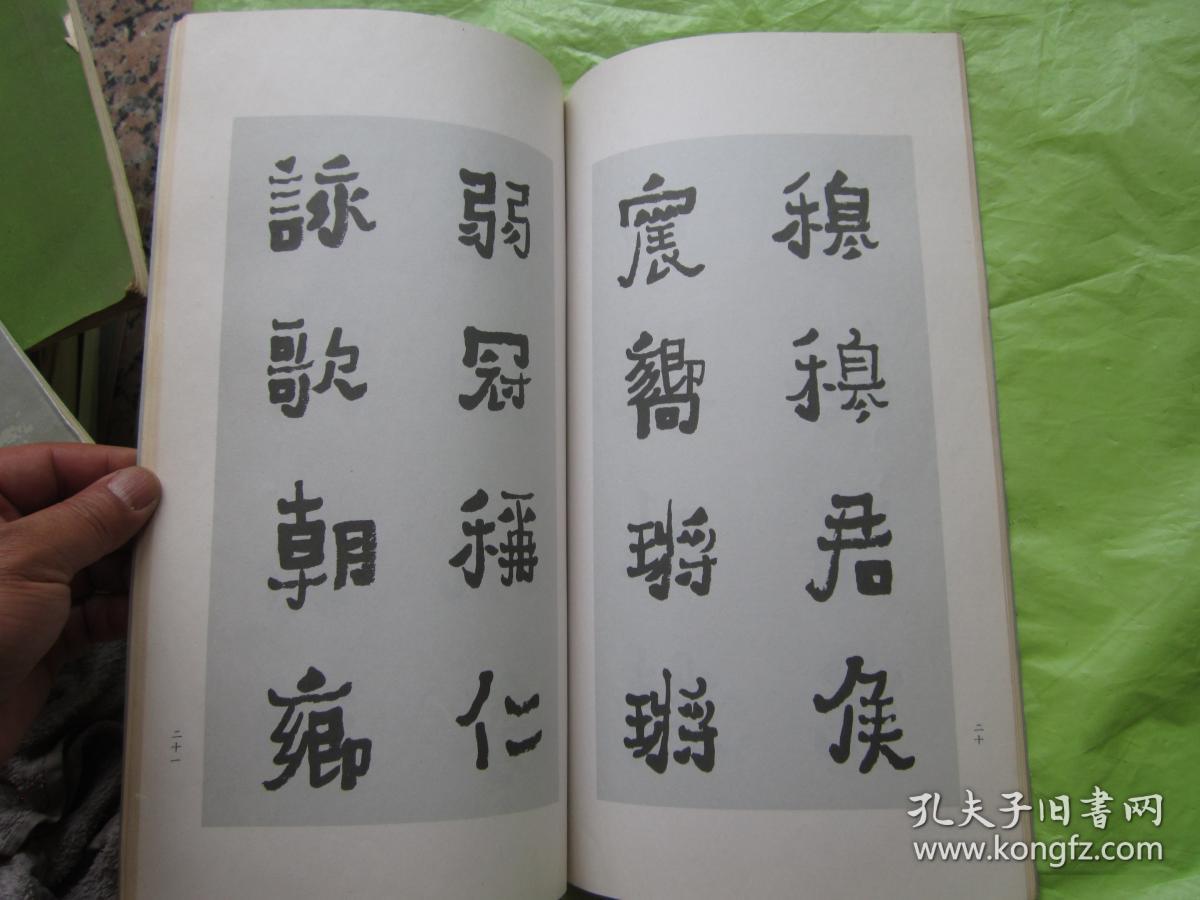 穆穆君侯
震嚮鏘鏘
二十
弱冠稱仁
詠歌朝鄉
二十一
孔夫子旧书网
www.kongfz.com